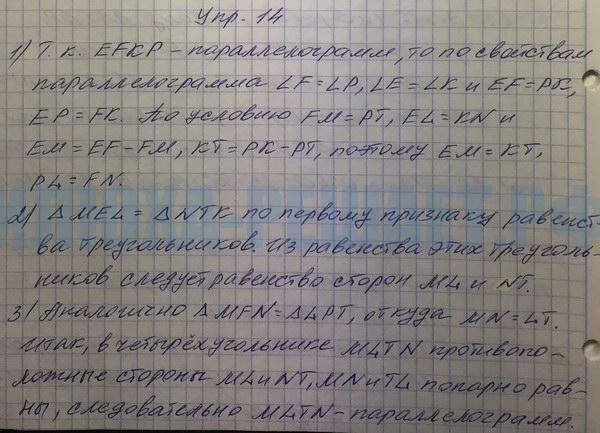 Упр. 14
1) Т. к. EFKP – параллелограмм, то по свойствам
параллелограмма ∠F = ∠P, ∠E = ∠K и EF = PK,
EP = FK. По условию FM = PT, EL = KN и
EM = EF – FM, KT = PK – PT, поэтому EM = KT,
PL = FN.
2) △MEL = △NTK по первому признаку равенст-
ва треугольников. Из равенства этих треуголь-
ников следует равенство сторон ML и NT.
3) Аналогично △MFN = △LPT, откуда MN = LT.
Итак, в четырёхугольнике MLTN противопо-
ложные стороны ML и NT, MN и TL попарно рав-
ны, следовательно MLTN – параллелограмм.